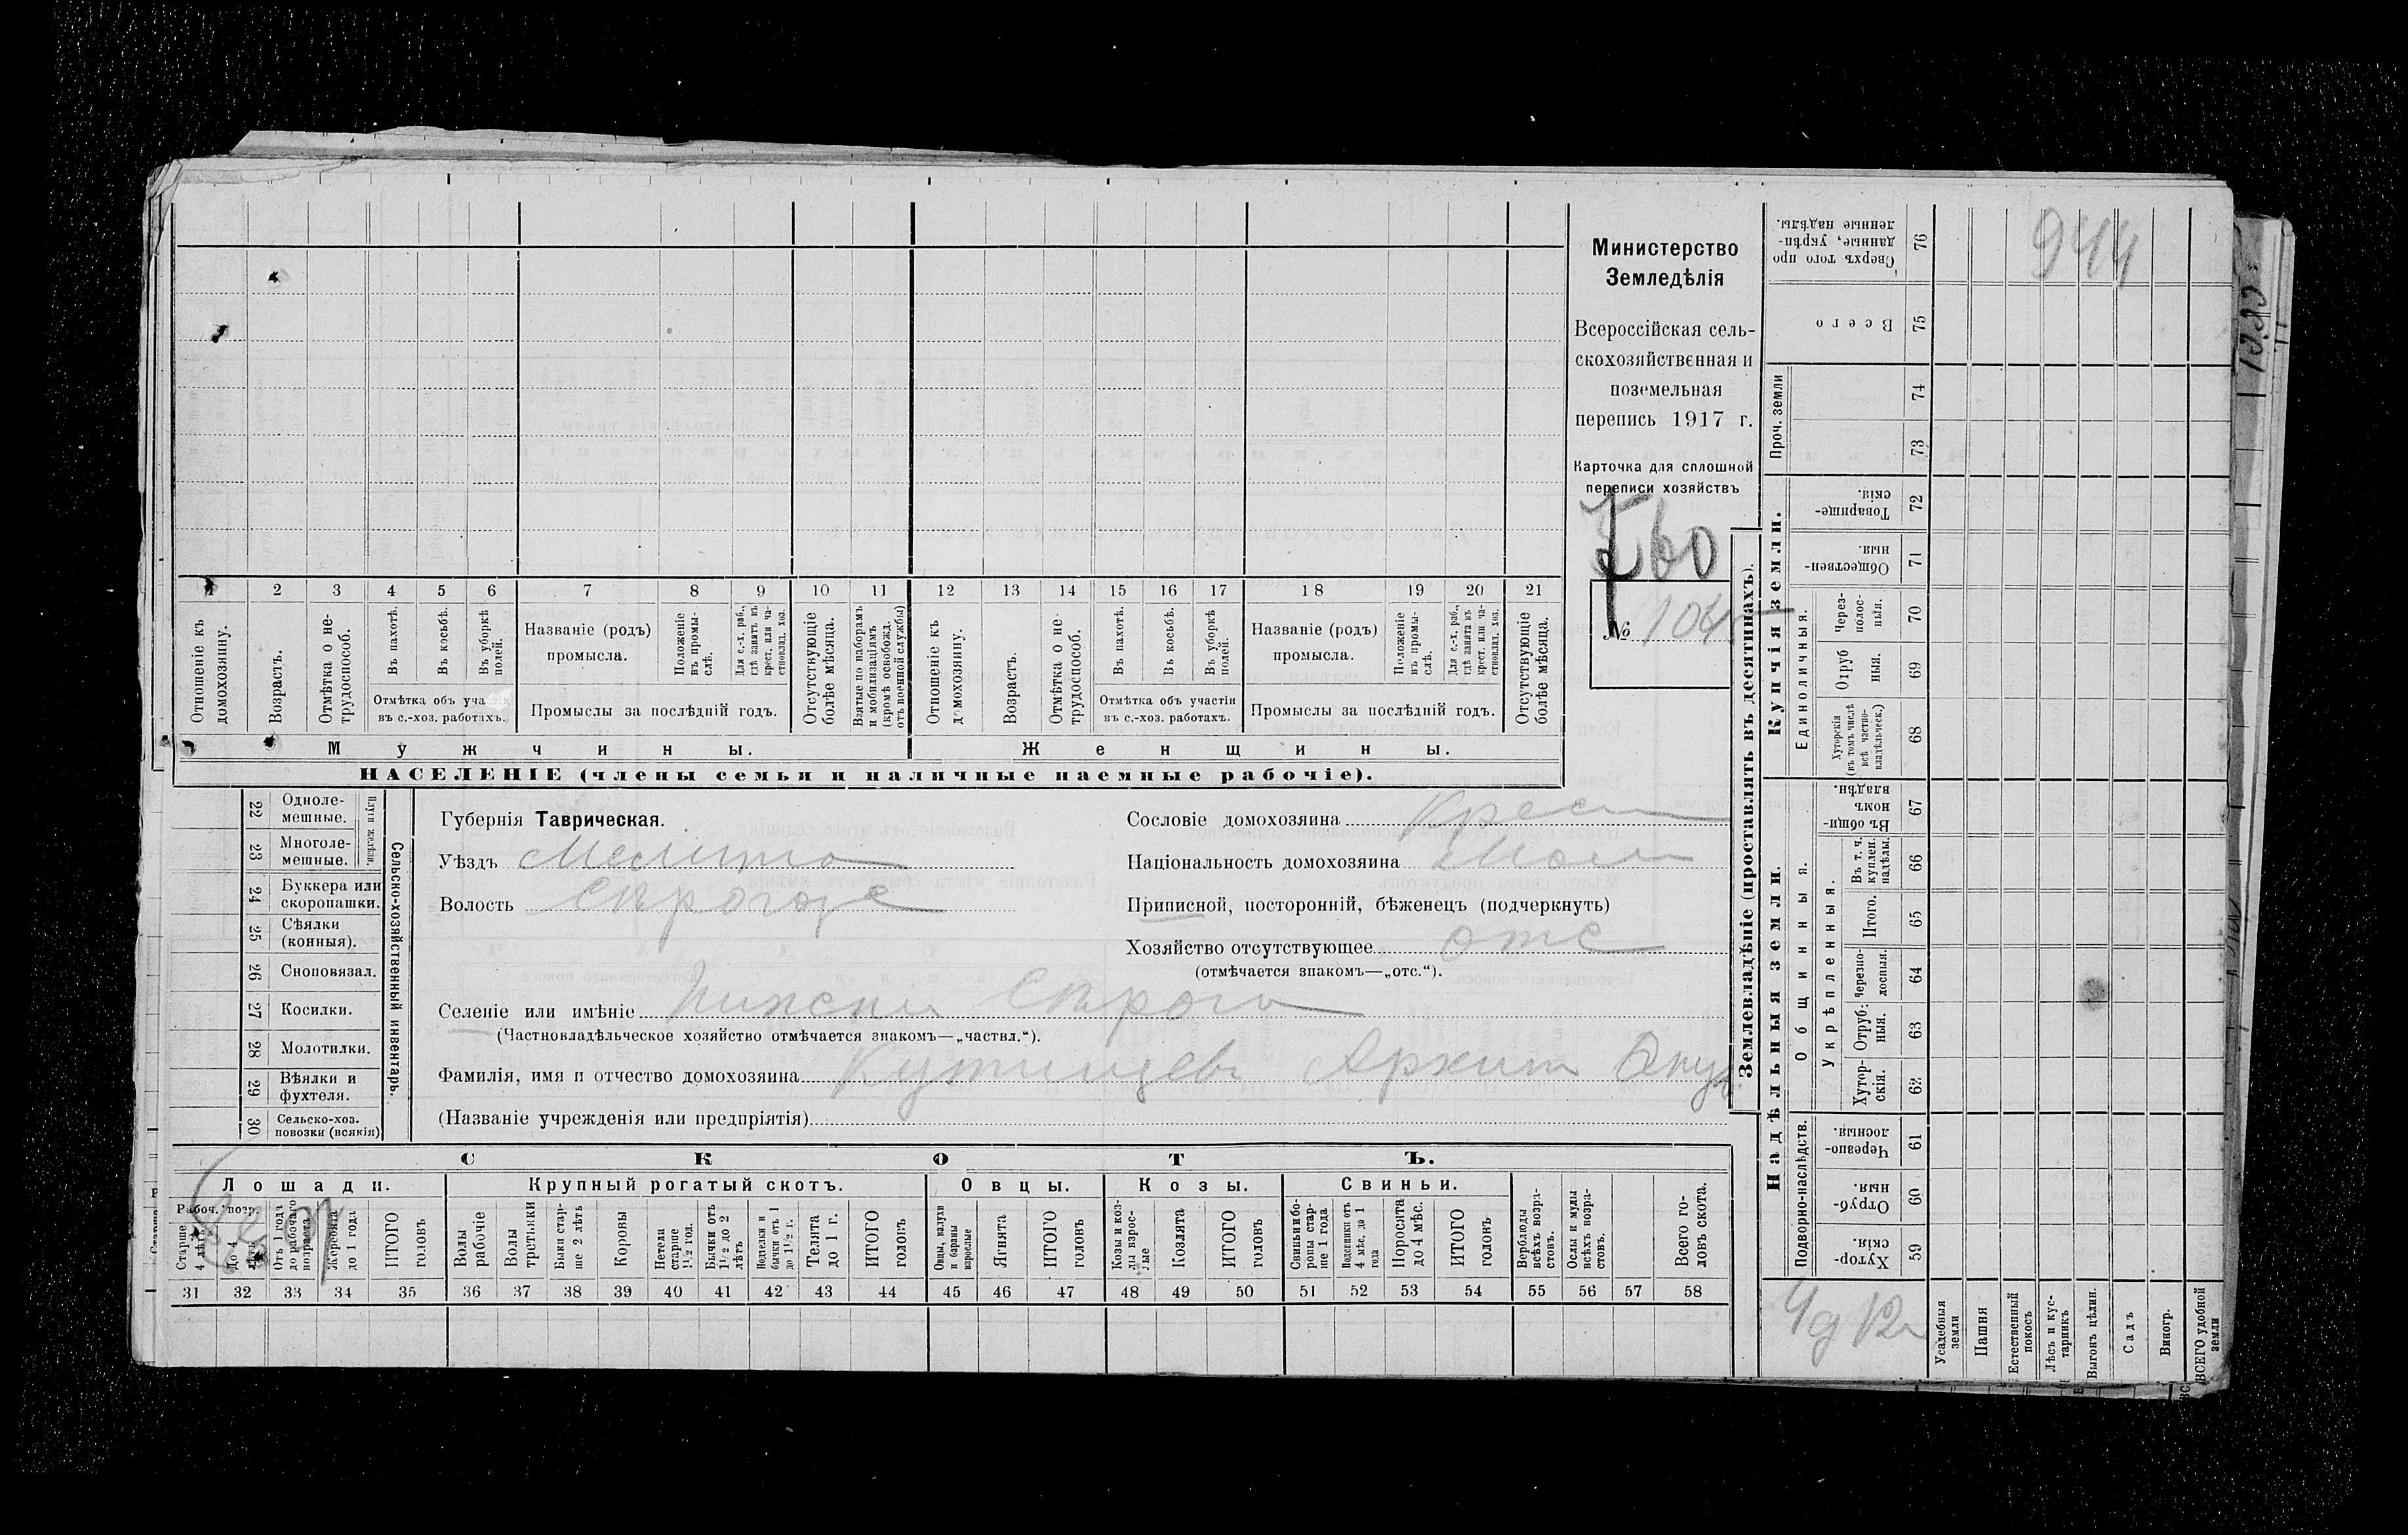 Министерство
Земледѣлія
Всероссійская сель-
скохозяйственная и
поземельная
перепись 1917 г.
Карточка для сплошной
переписи хозяйствъ
760
№ 104
944
1 2 3 4 5 6 7 8 9 10 11 12 13 14 15 16 17 18 19 20 21
Отношеніе къ домохозяину.
Возрастъ.
Отмѣтка о не- трудоспособ.
Въ пахотѣ.
Въ косьбѣ.
Въ уборкѣ полей.
Отмѣтка объ
въ с.-хоз. работахъ.
Названіе (родъ)
промысла.
Положеніе въ промы- слѣ.
Для с.-х. раб., гдѣ занятъ въ крест. или ча- стновлад. хоз.
Промыслы за послѣдній годъ.
Отсутствующіе болѣе мѣсяца.
Взятые по наборамъ и мобилизаціямъ (кромѣ освобожд. отъ военной службы)
Отношеніе къ домохозяину.
Возрастъ.
Отмѣтка о не- трудоспособ.
Въ пахотѣ.
Въ косьбѣ.
Въ уборкѣ полей.
Отмѣтка объ участіи
въ с.-хоз. работахъ.
Названіе (родъ)
промысла.
Положеніе въ промы- слѣ.
Для с.-х. раб., гдѣ занята въ крест. или ча- стновлад. хоз.
Промыслы за послѣдній годъ.
Отсутствующіе болѣе мѣсяца.
Мужчины.
Женщины.
НАСЕЛЕНІЕ (члены семьи и наличные наемные рабочіе).
22 Одноле- мешные.
23 Многоле- мешные.
Плуги желѣзн.
24 Буккера или скоропашки.
25 Сѣялки (конныя).
26 Сноповязал.
27 Косилки.
28 Молотилки.
29 Вѣялки и фухтеля.
30 Сельско-хоз. повозки (всякія)
Сельско-хозяйственный инвентарь.
Губернія Таврическая.
Уѣздъ Мелито
Волость Сѣрогозс
Сословіе домохозяина Крест
Національность домохозяина Мал
Приписной, посторонній, бѣженецъ (подчеркнуть)
Хозяйство отсутствующее отс
(отмѣчается знакомъ—„отс.“).
Селеніе или имѣніе Нижни Сѣрого
(Частновладѣльческое хозяйство отмѣчается знакомъ—„частвл.“).
Фамилія, имя и отчество домохозяина Архип
(Названіе учрежденія или предпріятія)
СКОТЪ.
Лошади.
Рабоч. возр.
Старше 4 лѣтъ
До 4 лѣтъ
Отъ 1 года до рабочаго возраста
Жеребята до 1 года
ИТОГО головъ
Крупный рогатый скотъ.
Волы рабочіе
Волы третьяки
Быки стар- ше 2 лѣтъ
Коровы
Нетели старше 1½ год.
Бычки отъ 1½ до 2 лѣтъ
бычки отъ 1 до 1½ г.
Телята до 1 г.
ИТОГО головъ
Овцы.
Овцы, валухи и бараны взрослые
Ягнята
ИТОГО головъ
Козы.
Козы и коз- лы взрос- лые
Козлята
ИТОГО головъ
Свиньи.
Свиньи и бо- ровы стар- ше 1 года
Подсвинки отъ 4 мѣс. до 1 года
Поросята до 4 мѣс.
ИТОГО головъ
Верблюды всѣхъ возра- стовъ.
Ослы и мулы всѣхъ возра- стовъ.
Всего го- ловъ скота.
31 32 33 34 35 36 37 38 39 40 41 42 43 44 45 46 47 48 49 50 51 52 53 54 55 56 57 58
Землевладѣніе (проставлять въ десятинахъ).
Сверхъ того про- данные, укрѣп- ленные надѣлы. 76
Всего 75
Проч. земли
74
73
Купчія земли.
Товарище- скія. 72
Обществен- ныя. 71
Единоличныя.
Через- полос- ныя. 70
Отруб ныя. 69
Хуторскія (въ томъ числѣ всѣ частно- владѣльческ.) 68
Надѣльныя земли.
Общинныя.
Въ общи- номъ владѣн. 67
Укрѣпленныя.
Въ т. ч. куплен. надѣлы. 66
Итого. 65
Черезпо- лосныя. 64
Отруб- ныя. 63
Хутор- скія. 62
Подворно-наслѣдств.
Черезпо- лосныя. 61
Отруб- ныя. 60
Хутор- скія. 59
Усадебныя земли
Пашня
Естественный покосъ
Лѣсъ и кус- тарникъ
Выгонъ цѣлин.
Садъ
Виногр.
ВСЕГО удобной земли